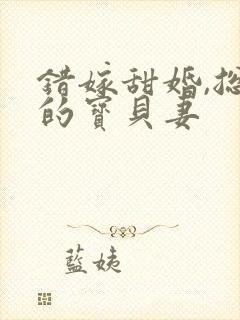 錯嫁甜婚,總
的寶貝妻
藍姨